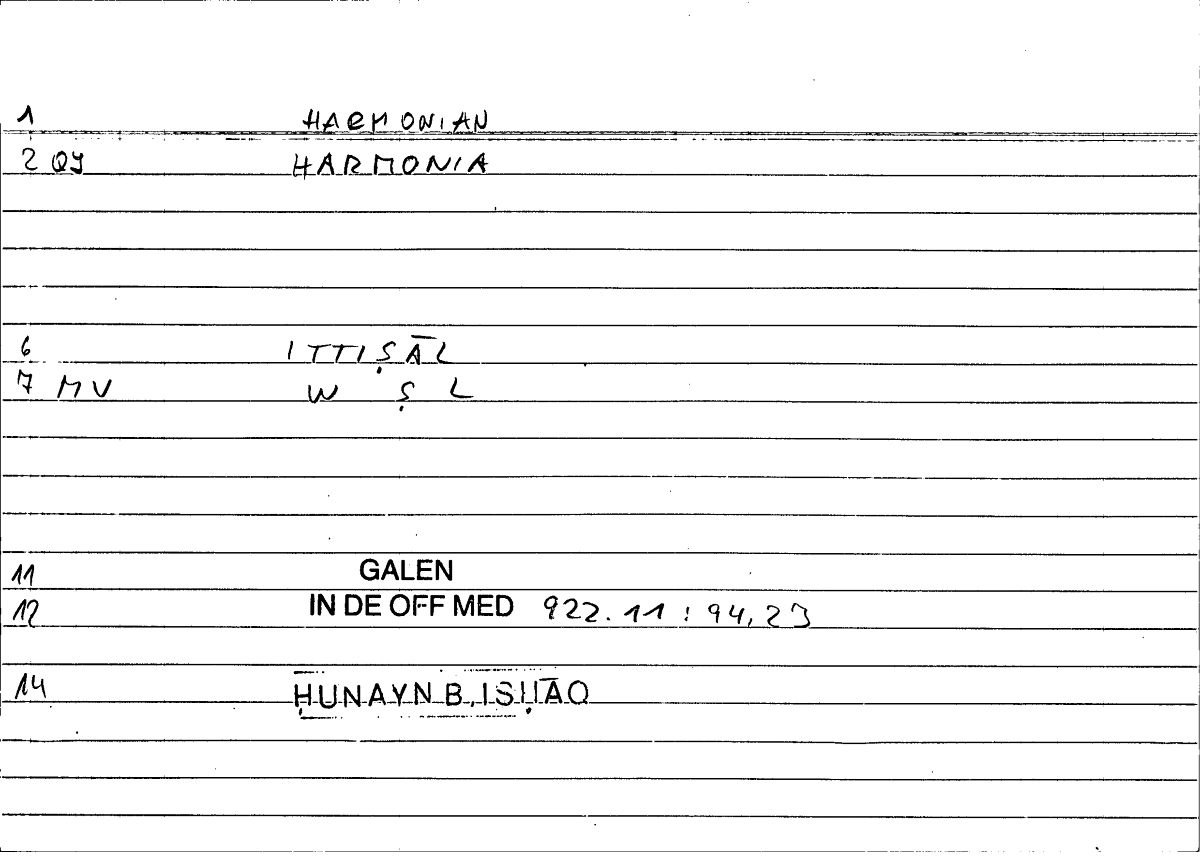 1 HARMONIAN
2 QJ HARMONIA
6 ITTIṢĀL
7 MV W Ṣ L
11 GALEN
12 IN DE OFF MED 922.11 : 94,23
14 ḤUNAYN B. ISḤĀQ